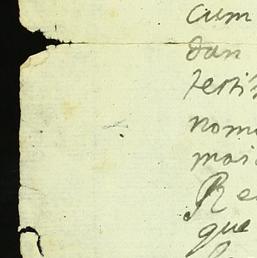 cum
dan
testi
nomi
mai
Re
que